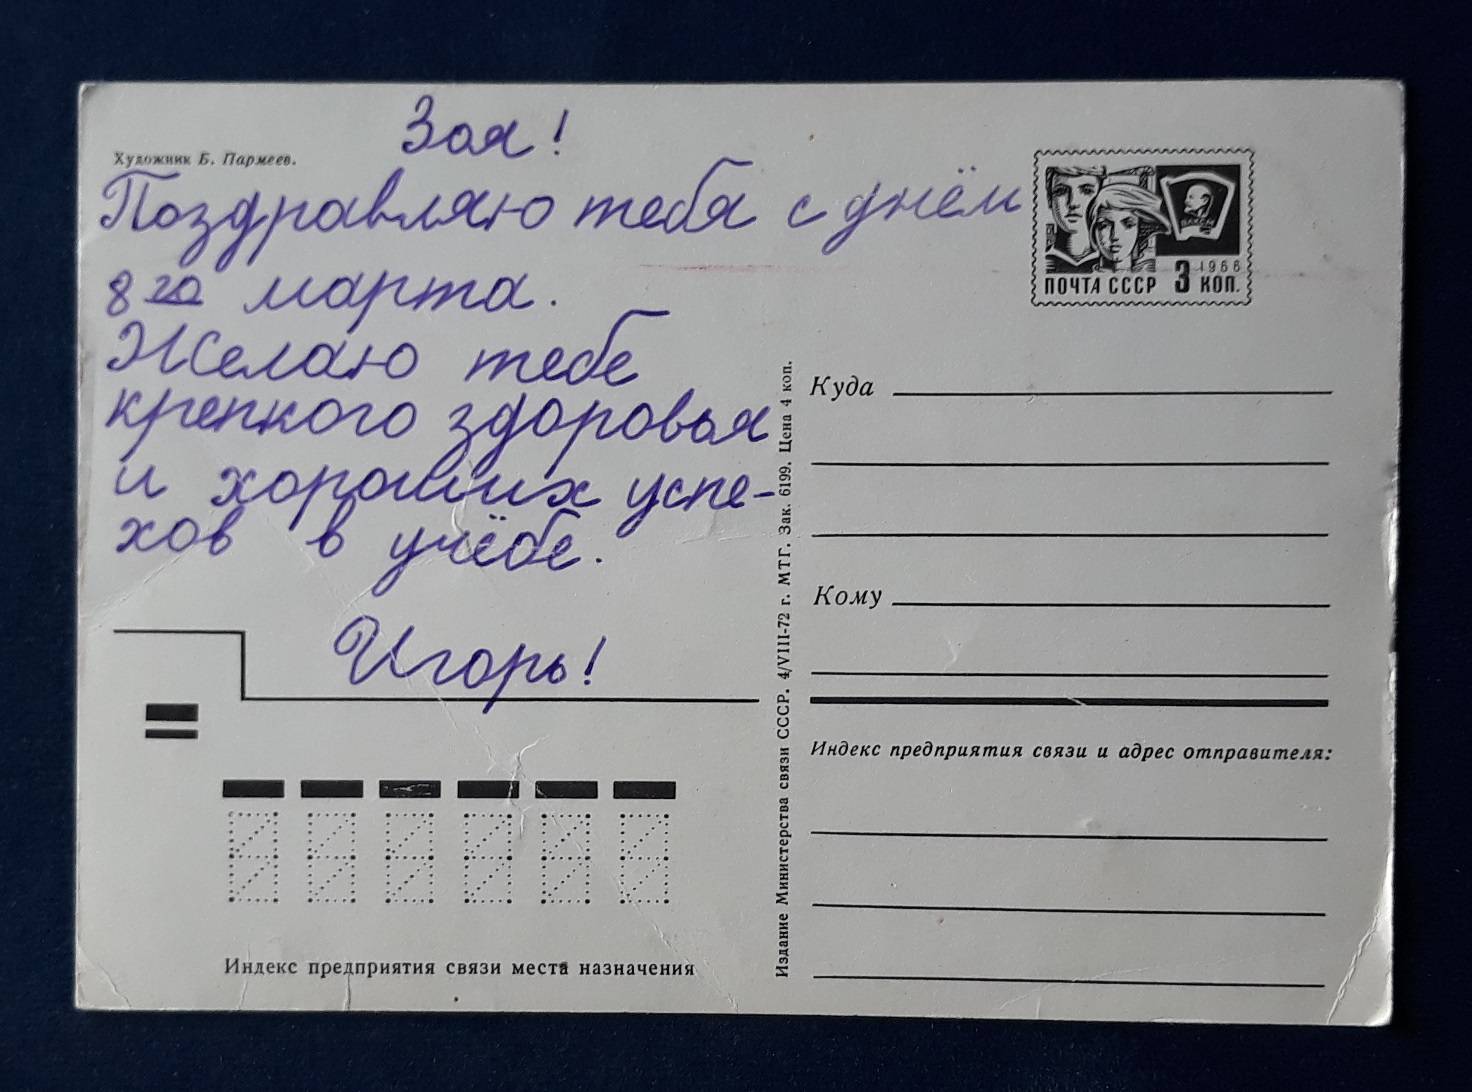 Зоя!
Художник Б. Пармеев.
Поздравляю тебя с днём
8го марта.
Желаю тебе
крепкого здоровья
и хороших успе-
хов в учёбе.
Игорь!
Индекс предприятия связи места назначения
Издание Министерства связи СССР. 4/VIII-72 г. МТГ. Зак. 6199. Цена 4 коп.
1966
ПОЧТА СССР 3 КОП.
Куда
Кому
Индекс предприятия связи и адрес отправителя: